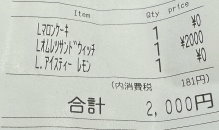 Item Qty price
Lマロンケーキ 1 ¥0
Lオムレツサンドウィッチ 1 ¥2000
L．アイスティー レモン 1 ¥0
(内消費税 181円)
合計 2,000円